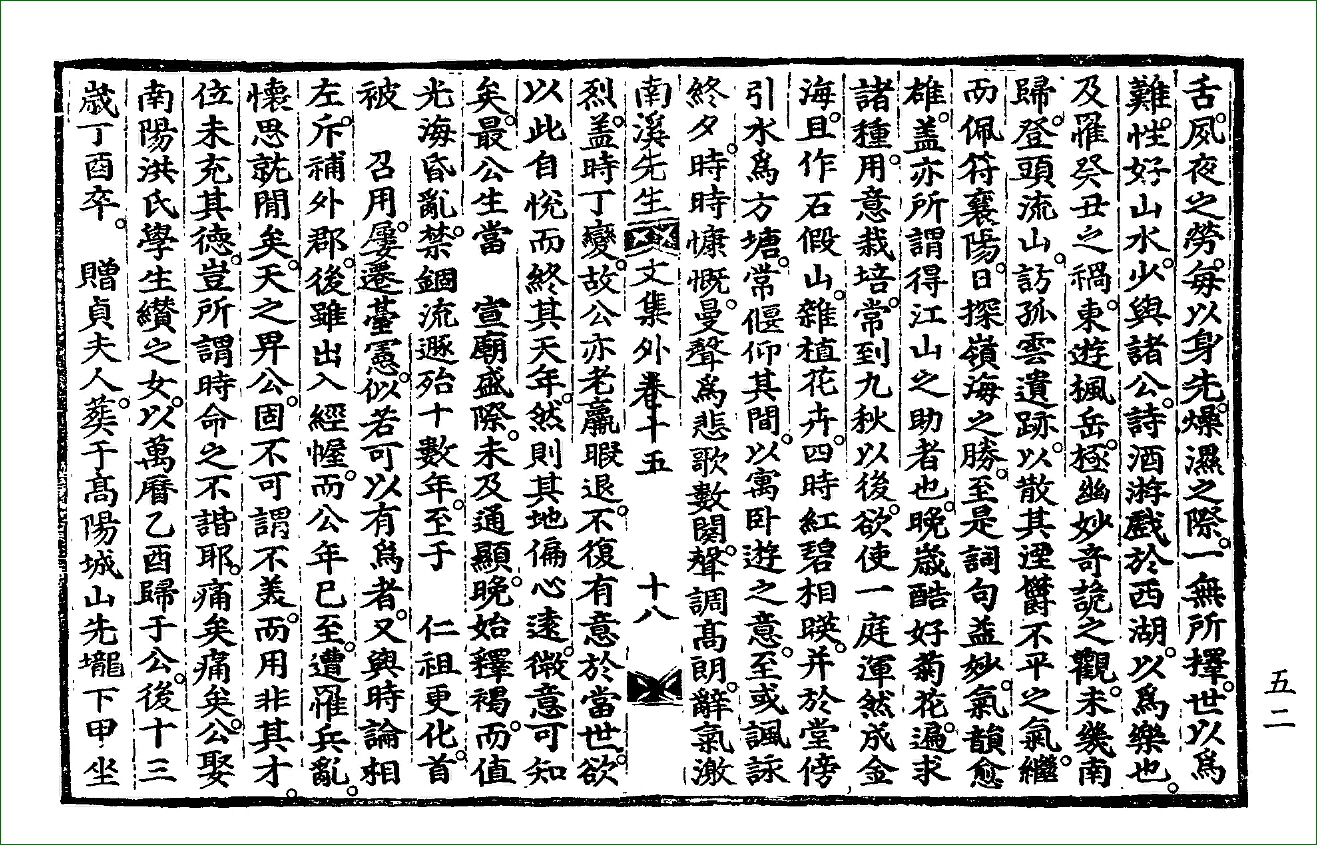 舌。夙夜之勞。每以身先。燥濕之際。一無所擇。世以爲
難。性好山水。少與諸公。詩酒游戲於西湖。以爲樂也。
及罹癸丑之禍。東遊楓岳。極幽妙奇詭之觀。未幾南
歸。登頭流山。訪孤雲遺跡。以散其湮鬱不平之氣。繼
而佩符襄陽。日探嶺海之勝。至是詞句益妙。氣韻愈
雄。盖亦所謂得江山之助者也。晚歲酷好菊花。遍求
諸種。用意栽培。常到九秋以後。欲使一庭渾然成金
海。且作石假山。雜植花卉。四時紅碧相暎。并於堂傍
引水爲方塘。常偃仰其間。以寓臥遊之意。至或諷詠
終夕。時時慷慨。曼聲爲悲歌數闋。聲調高朗。辭氣激
南溪先生文集外卷十五 十八
烈。盖時丁變故。公亦老羸暇退。不復有意於當世。欲
以此自悅而終其天年。然則其地偏心遠。微意可知
矣。最公生當 宣廟盛際。未及通顯。晚始釋褐。而値
光海昏亂。禁錮流遯殆十數年。至于 仁祖更化。首
被 召用。屢遷臺憲。似若可以有爲者。又與時論相
左。斥補外郡。後雖出入經幄。而公年已至。遭罹兵亂。
懷思就閒矣。天之畀公。固不可謂不羙。而用非其才。
位未充其德。豈所謂時命之不諧耶。痛矣痛矣。公娶
南陽洪氏學生纘之女。以萬曆乙酉歸于公。後十三
歲丁酉卒。 贈貞夫人。葬于高陽城山先壠下甲坐
五二